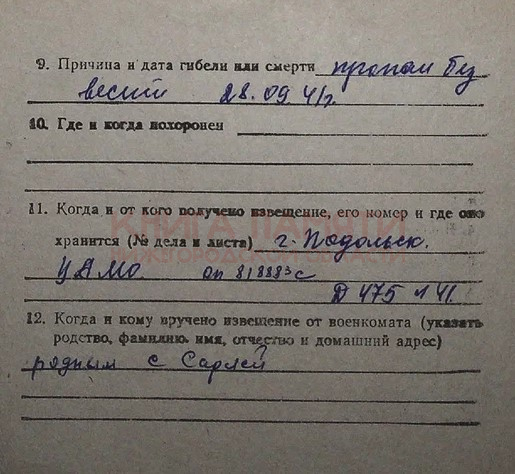 9. Причина и дата гибели или смерти пропал без
вести 28.09 41г.
10. Где и когда похоронен
11. Когда и от кого получено извещение, его номер и где оно
КНИГА ПАМЯТИ
хранится (№ дела и листа) г. Подольск.
НИЖЕГОРОДСКОЙ ОБЛАСТИ
ЦАМО оп 818883с
Д 475 л 41.
12. Когда и кому вручено извещение от военкомата (указать
родство, фамилию, имя, отчество и домашний адрес)
родным с Сарлей